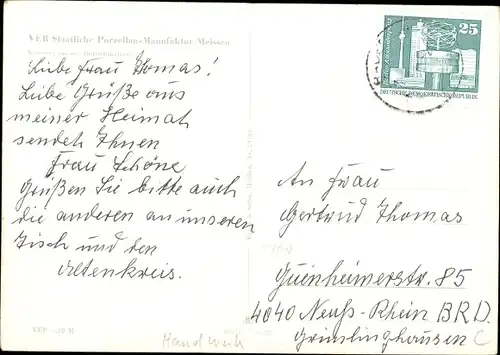 VEB Staatliche Porzellan-Manufaktur Meissen
Liebe Frau Thomas!
Liebe Grüße aus
meiner Heimat
sendet Ihnen
Frau Schöne
Grüßen Sie bitte auch
die anderen an unseren
Tisch und den
Altenkreis.
25
DEUTSCHE DEMOKRATISCHE REPUBLIK
An Frau
Gertrud Thomas
Guenheimerstr. 85
4040 Neuß-Rhein BRD.
Grimlinghausen
C
Handwerk